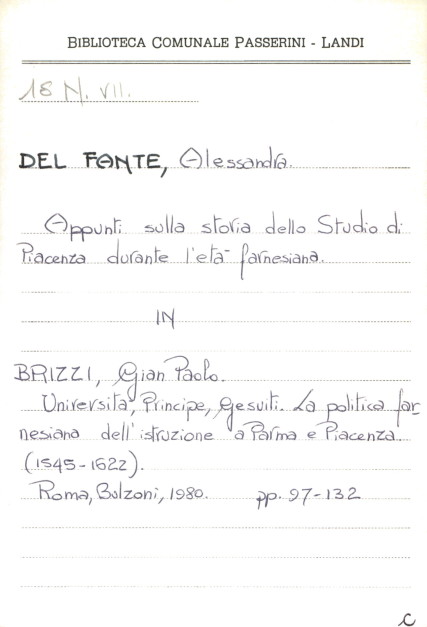 BIBLIOTECA COMUNALE PASSERINI - LANDI
18 N. VII.
DEL FANTE, Alessandra.
Appunti sulla storia dello Studio di
Piacenza durante l'età farnesiana.
IN
BRIZZI, Gian Paolo.
Università, Principe, Gesuiti. La politica far-
nesiana dell'istruzione a Parma e Piacenza
(1545-1622).
Roma, Bulzoni, 1980. pp. 97-132
C